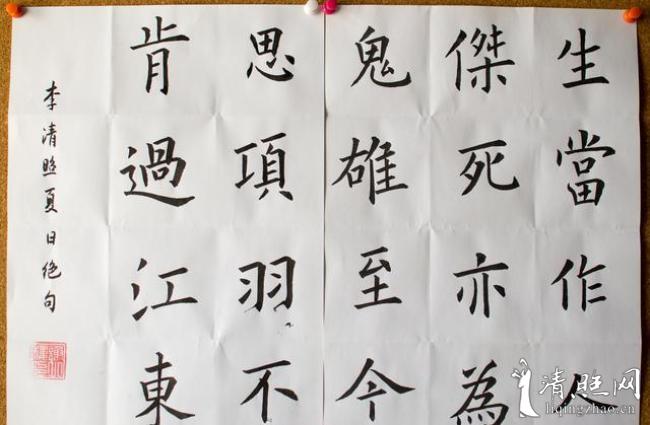 生當作人
傑死亦為
鬼雄至今
思項羽不
肯過江東
李清照夏日绝句
清照网
liqingzhao.cn